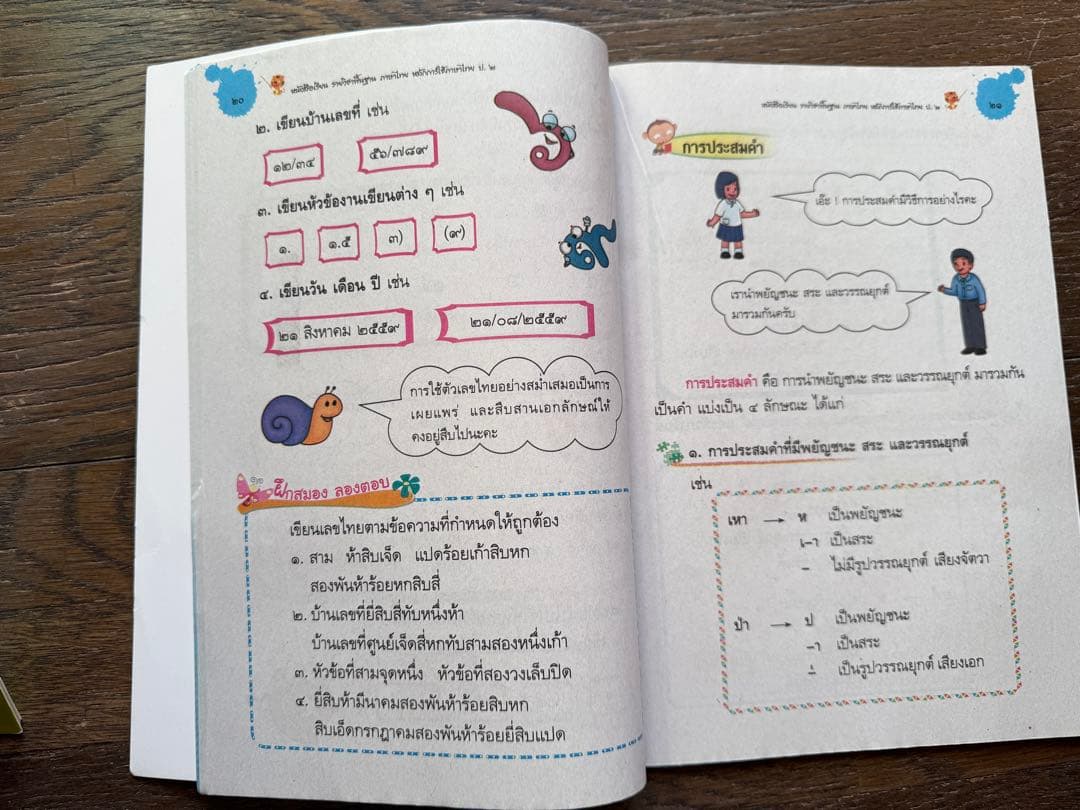 ๒๐
หนังสือเรียน รายวิชาพื้นฐาน ภาษาไทย หลักการใช้ภาษาไทย ป. ๒
๒. เขียนบ้านเลขที่ เช่น
๑๒/๓๔ ๕๖/๗๘๙
๓. เขียนหัวข้องานเขียนต่าง ๆ เช่น
๑. ๑.๕ ๓) (๙)
๔. เขียนวัน เดือน ปี เช่น
๒๑ สิงหาคม ๒๕๕๙ ๒๑/๐๘/๒๕๕๙
การใช้ตัวเลขไทยอย่างสม่ำเสมอเป็นการ
เผยแพร่ และสืบสานเอกลักษณ์ให้
คงอยู่สืบไปนะคะ
ฝึกสมอง ลองตอบ
เขียนเลขไทยตามข้อความที่กำหนดให้ถูกต้อง
๑. สาม ห้าสิบเจ็ด แปดร้อยเก้าสิบหก
สองพันห้าร้อยหกสิบสี่
๒. บ้านเลขที่ยี่สิบสี่ทับหนึ่งห้า
บ้านเลขที่ศูนย์เจ็ดสี่หกทับสามสองหนึ่งเก้า
๓. หัวข้อที่สามจุดหนึ่ง หัวข้อที่สองวงเล็บปิด
๔. ยี่สิบห้ามีนาคมสองพันห้าร้อยสิบหก
สิบเอ็ดกรกฎาคมสองพันห้าร้อยยี่สิบแปด
หนังสือเรียน รายวิชาพื้นฐาน ภาษาไทย หลักการใช้ภาษาไทย ป. ๒
๒๑
การประสมคำ
เอ๊ะ ! การประสมคำมีวิธีการอย่างไรคะ
เรานำพยัญชนะ สระ และวรรณยุกต์
มารวมกันครับ
การประสมคำ คือ การนำพยัญชนะ สระ และวรรณยุกต์ มารวมกัน
เป็นคำ แบ่งเป็น ๔ ลักษณะ ได้แก่
๑. การประสมคำที่มีพยัญชนะ สระ และวรรณยุกต์
เช่น
เหา → ห เป็นพยัญชนะ
เ–า เป็นสระ
– ไม่มีรูปวรรณยุกต์ เสียงจัตวา
ป่า → ป เป็นพยัญชนะ
–า เป็นสระ
–่ เป็นรูปวรรณยุกต์ เสียงเอก